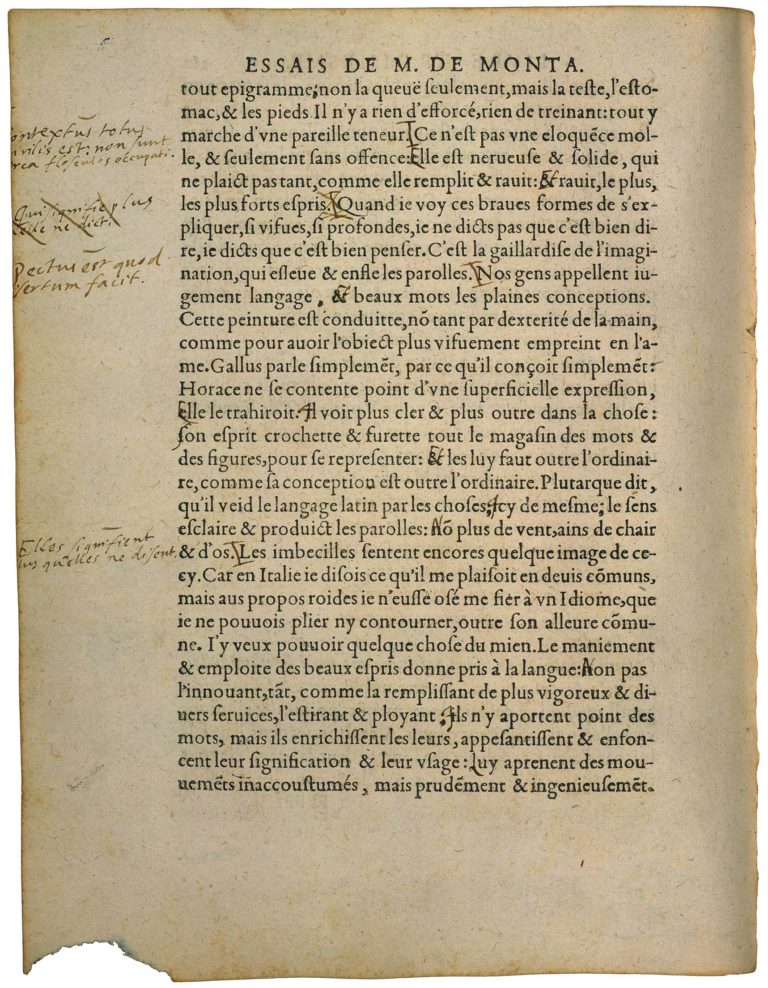 ESSAIS DE M. DE MONTA.
tout epigramme; non la queuë ſeulement, mais la teſte, l'eſto-
mac, & les pieds. Il n'y a rien d'efforcé, rien de treinant: tout y
marche d'vne pareille teneur. Ce n'eſt pas vne eloquẽce mol-
le, & ſeulement ſans offence: Elle eſt nerueuſe & ſolide, qui
ne plaict pas tant, comme elle remplit & rauit: & rauit, le plus,
les plus forts eſpris. Quand ie voy ces braues formes de s'ex-
pliquer, ſi vifues, ſi profondes, ie ne dicts pas que c'eſt bien di-
re, ie dicts que c'eſt bien penſer. C'eſt la gaillardiſe de l'imagi-
nation, qui eſleue & enfle les parolles. Nos gens appellent iu-
gement langage, & beaux mots les plaines conceptions.
Cette peinture eſt conduitte, nõ tant par dexterité de la main,
comme pour auoir l'obiect plus vifuement empreint en l'a-
me. Gallus parle ſimplemẽt, par ce qu'il conçoit ſimplemẽt:
Horace ne ſe contente point d'vne ſuperficielle expreſſion,
Elle le trahiroit. Il voit plus cler & plus outre dans la choſe:
ſon eſprit crochette & furette tout le magaſin des mots &
des figures, pour ſe repreſenter: & les luy faut outre l'ordinai-
re, comme ſa conception eſt outre l'ordinaire. Plutarque dit,
qu'il veid le langage latin par les choſes; Icy de meſme; le ſens
eſclaire & produict les parolles: Nõ plus de vent, ains de chair
& d'os. Les imbecilles ſentent encores quelque image de ce-
cy. Car en Italie ie diſois ce qu'il me plaiſoit en deuis cõmuns,
mais aus propos roides ie n'euſſe oſé me fier à vn Idiome, que
ie ne pouuois plier ny contourner, outre ſon alleure cõmu-
ne. I'y veux pouuoir quelque choſe du mien. Le maniement
& emploite des beaux eſpris donne pris à la langue: Non pas
l'innouant, tãt, comme la rempliſſant de plus vigoreux & di-
uers ſeruices, l'eſtirant & ployant; Ils n'y aportent point des
mots, mais ils enrichiſſent les leurs, appeſantiſſent & enfon-
cent leur ſignification & leur vſage: Luy aprenent des mou-
uemẽts inaccouſtumés, mais prudẽment & ingenieuſemẽt.
ontextus totus
irilis est: non sunt
rea flosculos occupati.
Qui signifie plus
elle ne dict.
Pectus est quod
sertum facit.
Elles signifient
lus qu'elles ne disent